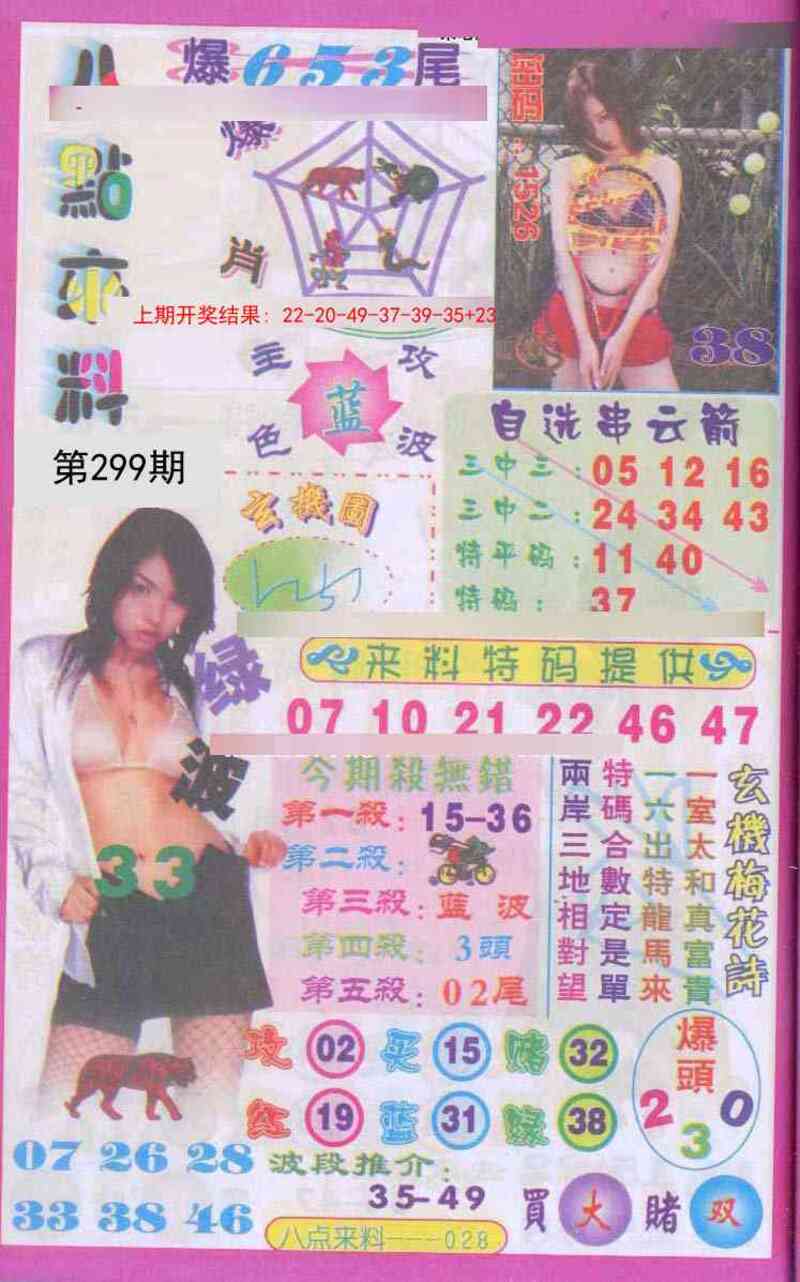 八點來料
爆653尾
爆肖
上期开奖结果：22-20-49-37-39-35+23
主攻
蓝
色波
第299期
玄機圖
1526
38
自选串云箭
三中三：05 12 16
三中二：24 34 43
特平码：11 40
特码：37
来料特码提供
07 10 21 22 46 47
绿波
33
今期殺無錯
第一殺：15-36
第二殺：
第三殺：蓝波
第四殺：3頭
第五殺：02尾
玄機梅花詩
一室太和真富貴
一六出特龍馬來
特碼合數定是單
兩岸三地相對望
攻 02 买 15 赌 32
红 19 蓝 31 绿 38
爆頭
2 3 0
07 26 28
33 38 46
波段推介：
35-49
買大賭双
八点来料---028